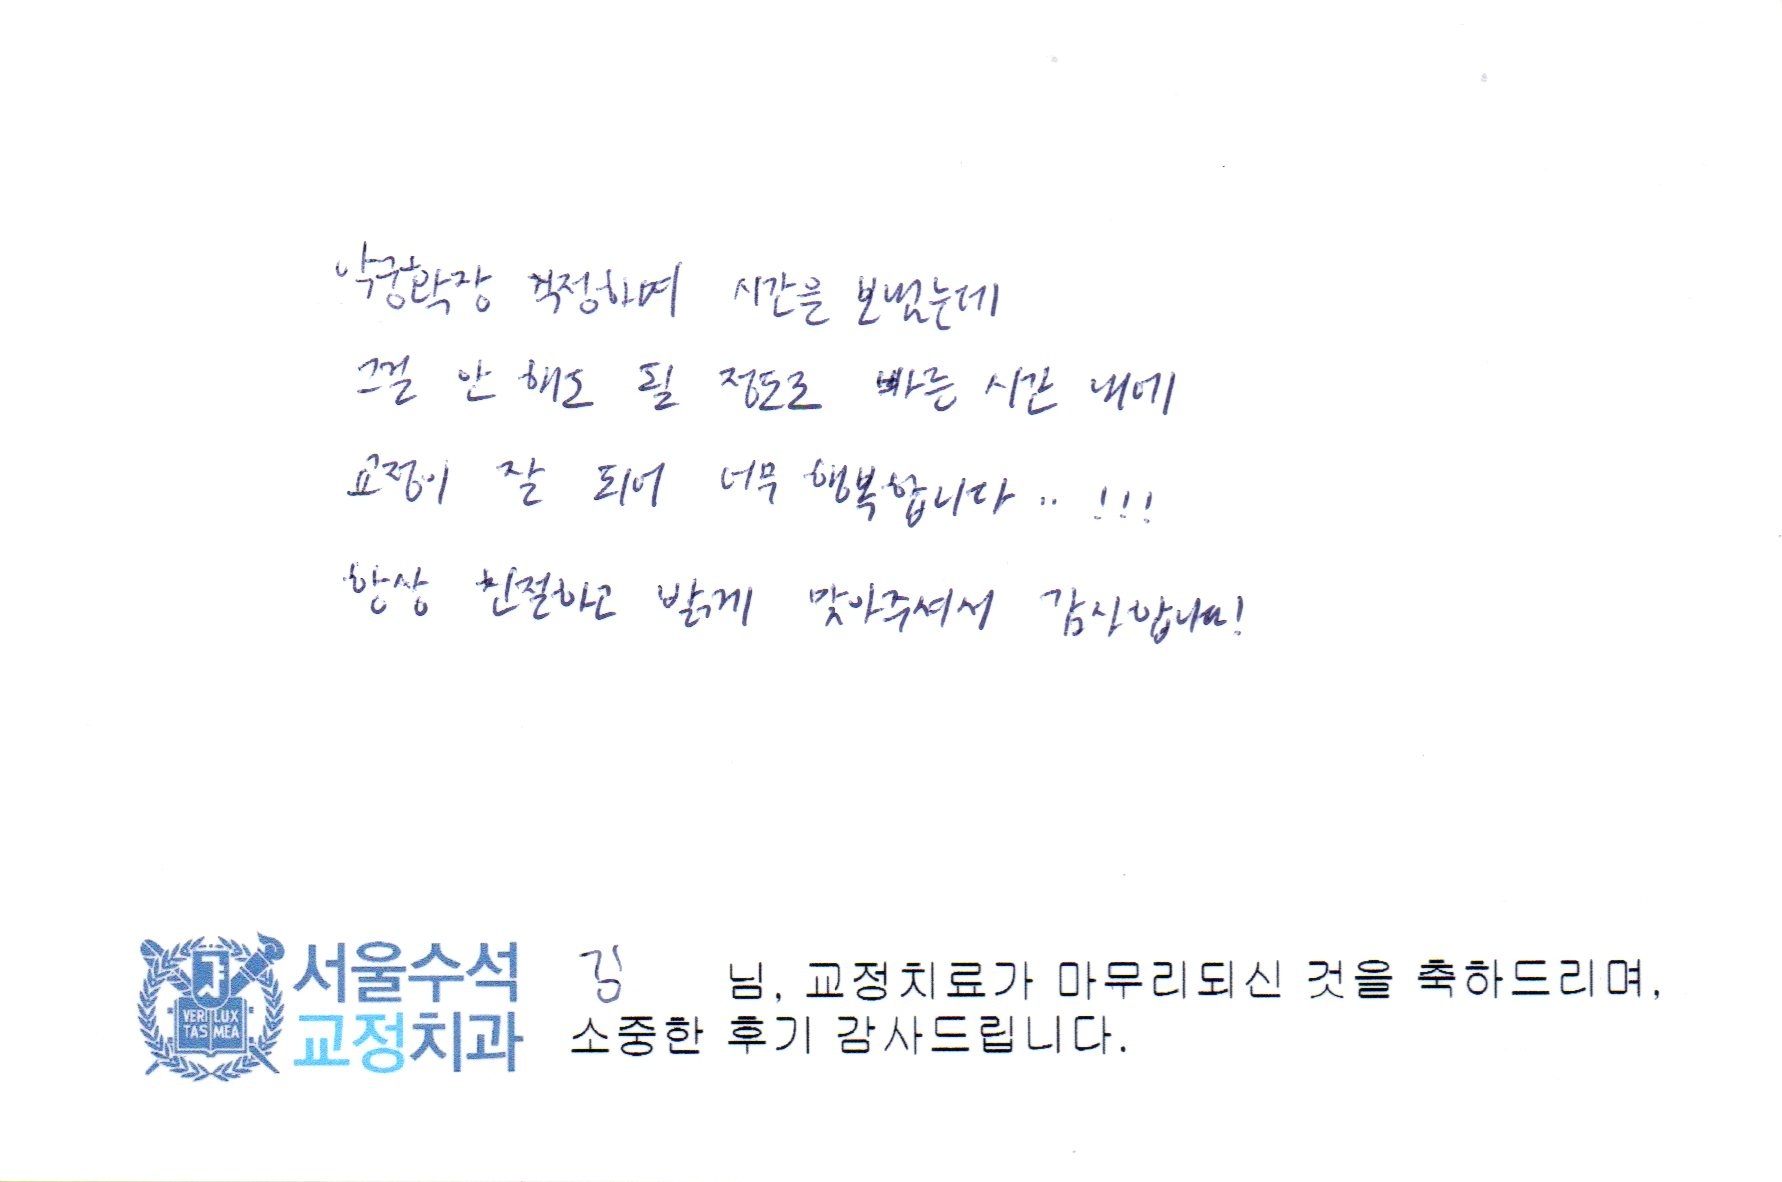 악궁확장 걱정하며 시간을 보냈는데
그걸 안 해도 될 정도로 빠른 시간 내에
교정이 잘 되어 너무 행복합니다.. !!!
항상 친절하고 밝게 맞아주셔서 감사합니다!
서울수석
교정치과
VERI LUX
TAS MEA
김 님, 교정치료가 마무리되신 것을 축하드리며,
소중한 후기 감사드립니다.